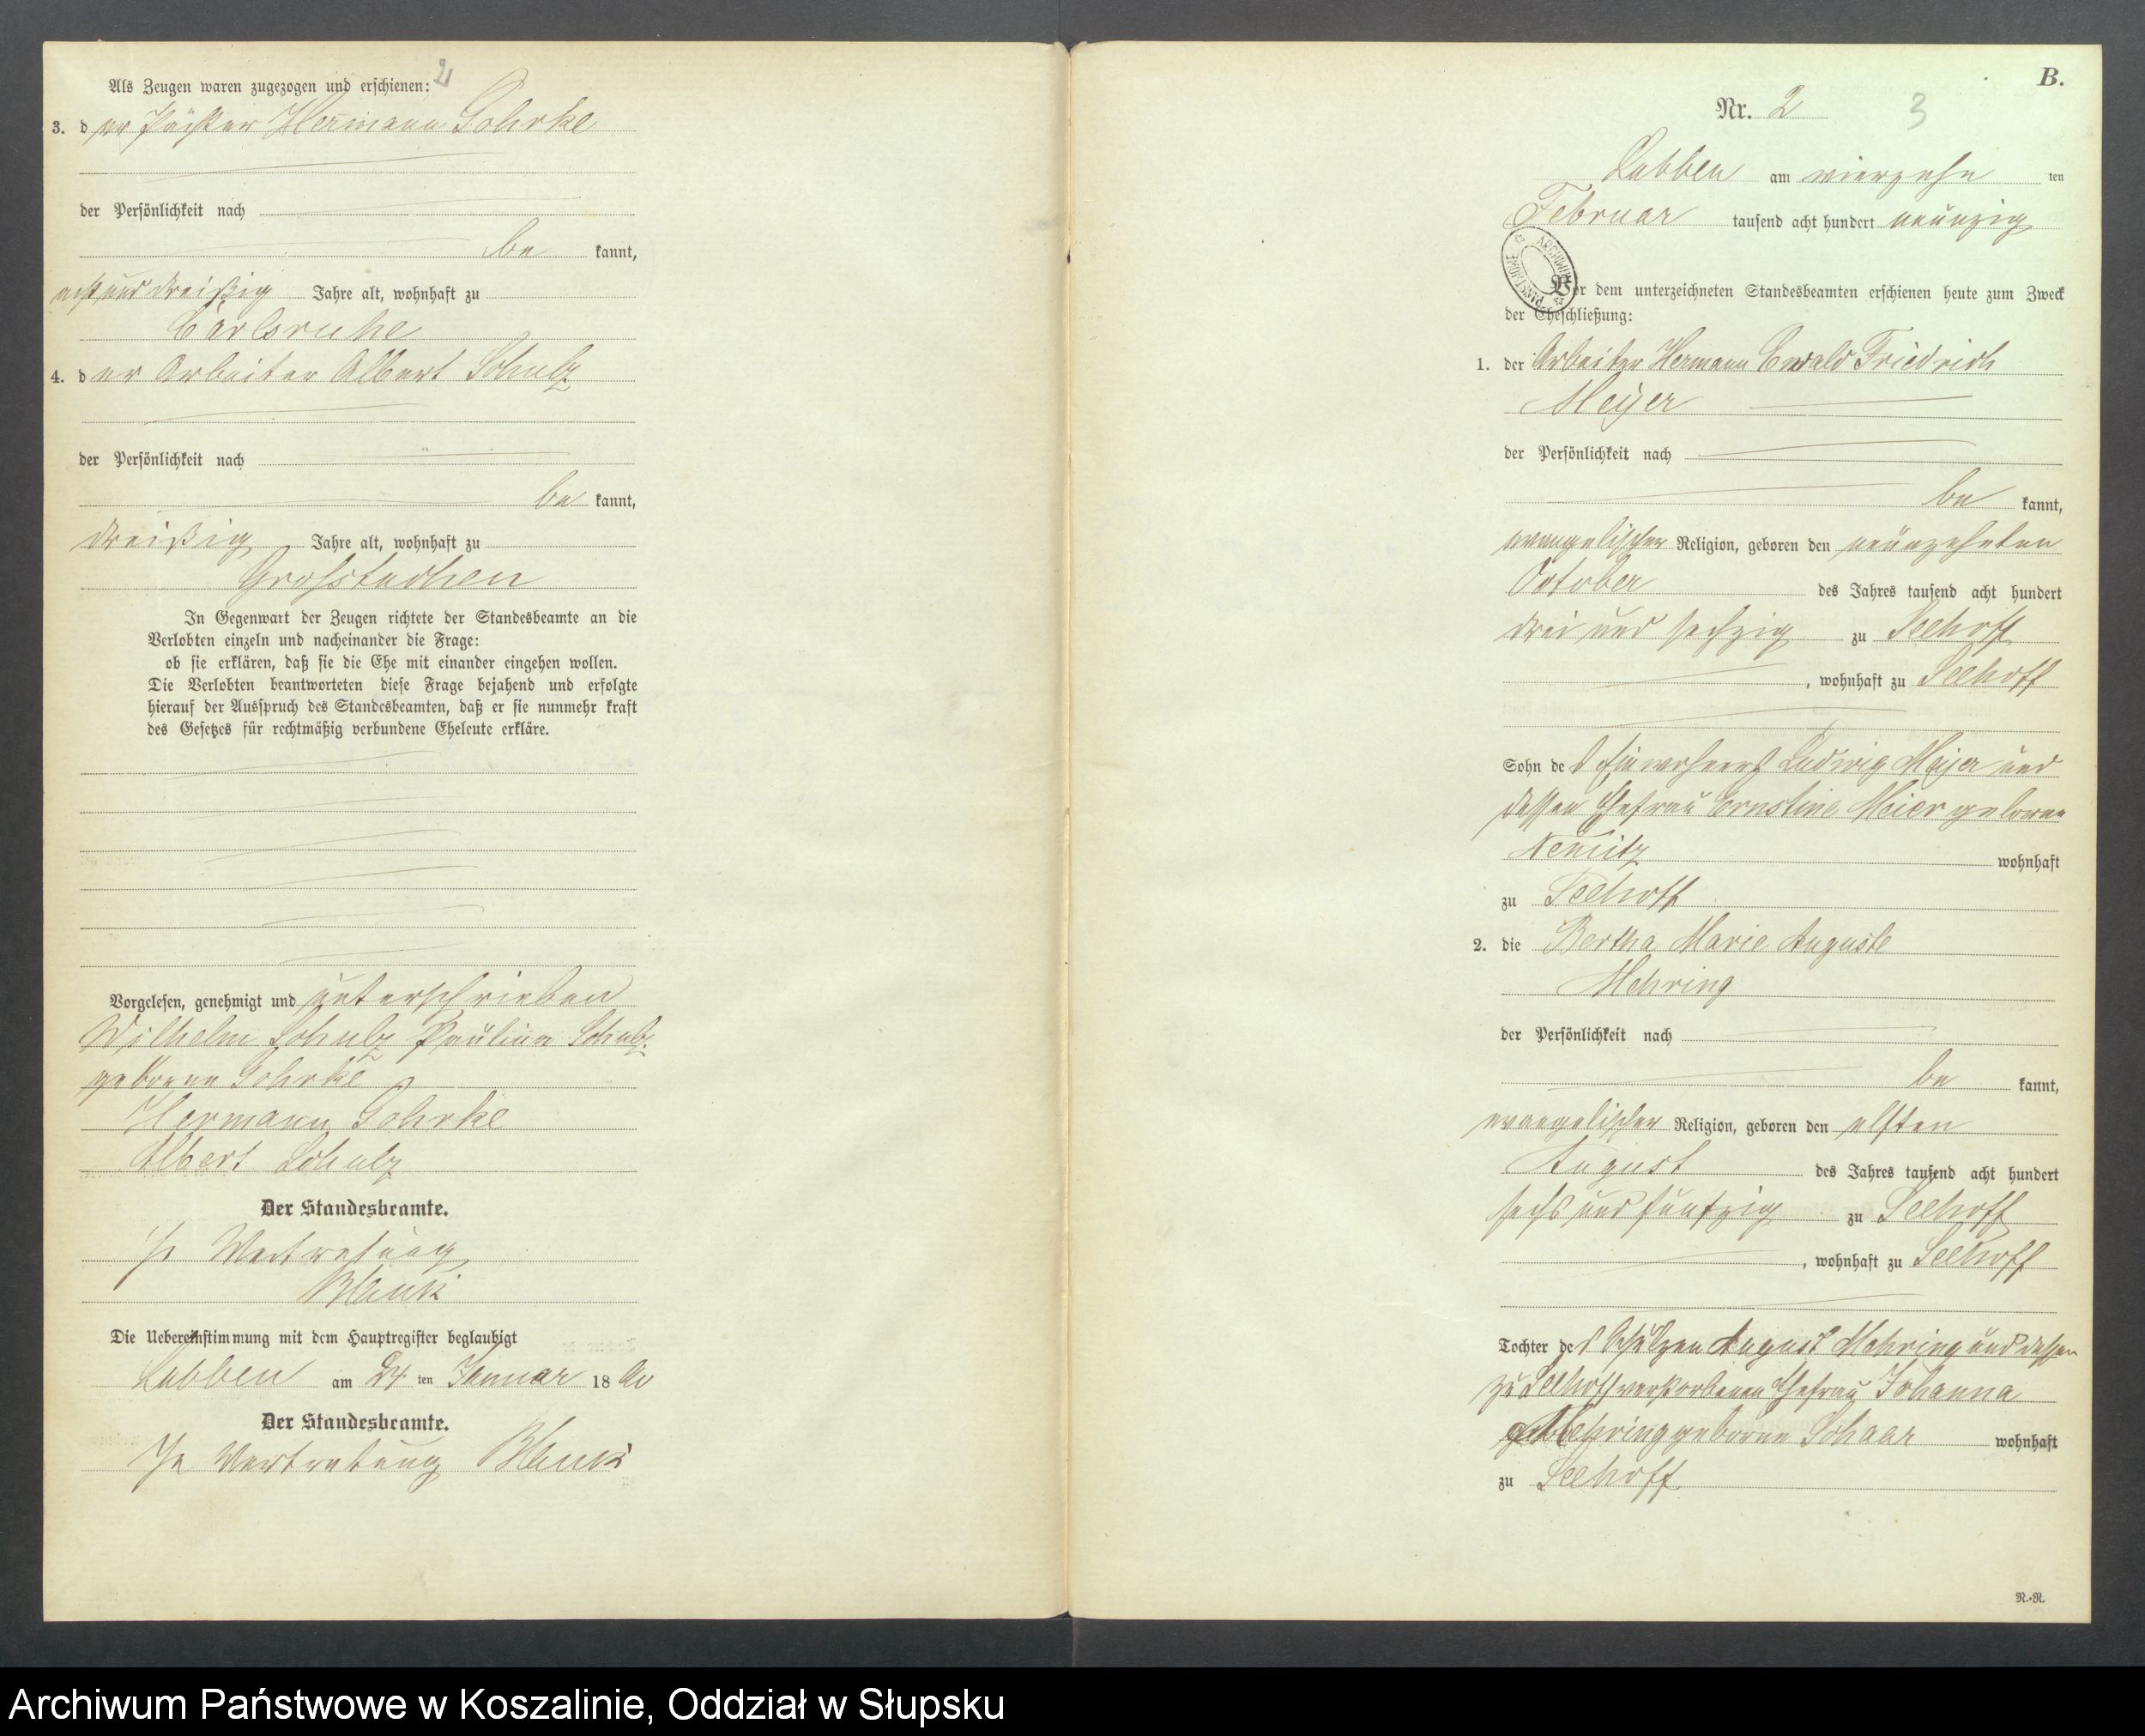 Als Zeugen waren zugezogen und erschienen:
2
3. der Pächter Hermann Gohrke
der Persönlichkeit nach
be kannt,
acht und dreißig Jahre alt, wohnhaft zu
Carlsruhe
4. der Arbeiter Albert Schulz
der Persönlichkeit nach
be kannt,
dreißig Jahre alt, wohnhaft zu
Großtuchen
In Gegenwart der Zeugen richtete der Standesbeamte an die
Verlobten einzeln und nacheinander die Frage:
ob sie erklären, daß sie die Ehe mit einander eingehen wollen.
Die Verlobten beantworteten diese Frage bejahend und erfolgte
hierauf der Ausspruch des Standesbeamten, daß er sie nunmehr kraft
des Gesetzes für rechtmäßig verbundene Eheleute erkläre.
Vorgelesen, genehmigt und unterschrieben
Wilhelm Schulz Pauline Schulz
geborne Gohrke
Hermann Gohrke
Albert Schulz
Der Standesbeamte.
In Vertretung
Blank
Die Uebereinstimmung mit dem Hauptregister beglaubigt
Lubben am 24 ten Januar 1890
Der Standesbeamte.
In Vertretung Blank
B.
Nr. 2
3
Lubben am vierzehn ten
Februar tausend acht hundert neunzig
Vor dem unterzeichneten Standesbeamten erschienen heute zum Zweck
der Eheschließung:
1. der Arbeiter Hermann Ewald Friedrich
Meyer
der Persönlichkeit nach
be kannt,
evangelischer Religion, geboren den neunzehnten
October des Jahres tausend acht hundert
drei und sechzig zu Seehoff
, wohnhaft zu Seehoff
Sohn des Einwohners Ludwig Meyer und
dessen Ehefrau Ernstine Meier geborne
wohnhaft
zu Seehoff
2. die Bertha Marie Auguste
Mehring
der Persönlichkeit nach
be kannt,
evangelischer Religion, geboren den elften
August des Jahres tausend acht hundert
sechs und fünfzig zu Seehoff
, wohnhaft zu Seehoff
Tochter des Schulzen August Mehring und dessen
zu Seehoff verstorbenen Ehefrau Johanna
Mehring geborne Schaar wohnhaft
zu Seehoff
R.-R.
Archiwum Państwowe w Koszalinie, Oddział w Słupsku